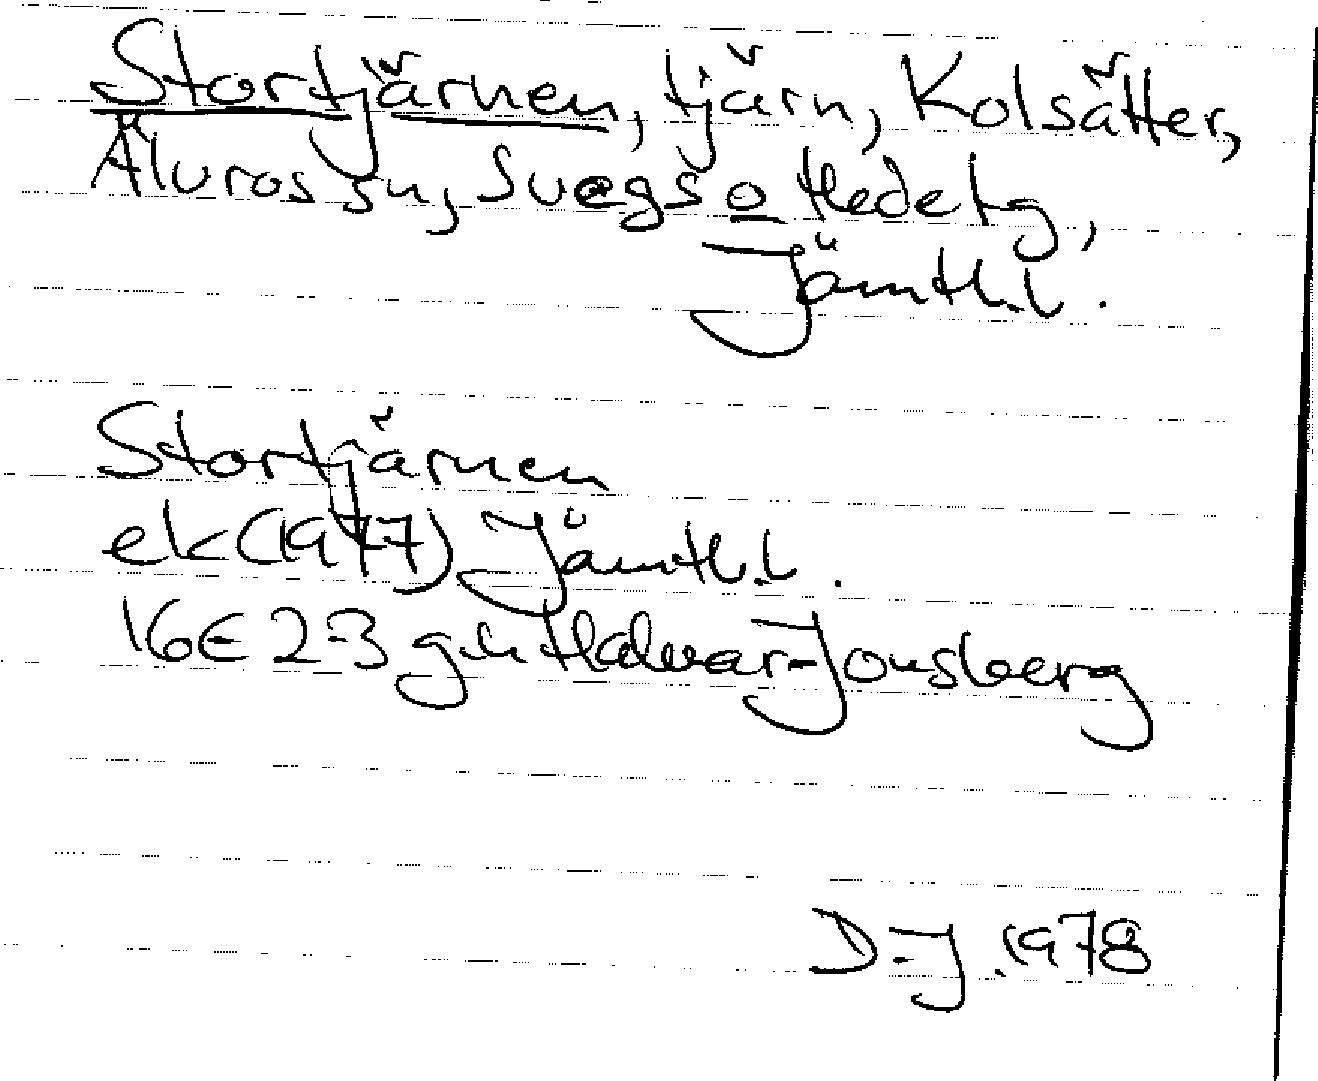 Stortjärnen, tjärn, Kolsätter,
Älvros sn, Svegs o Hede tg,
Jämtl.l.
Stortjärnen
ek (1977) Jämtl.l.
16E 2-3 g-h Halvar-Jonsberg
D-J. 1978